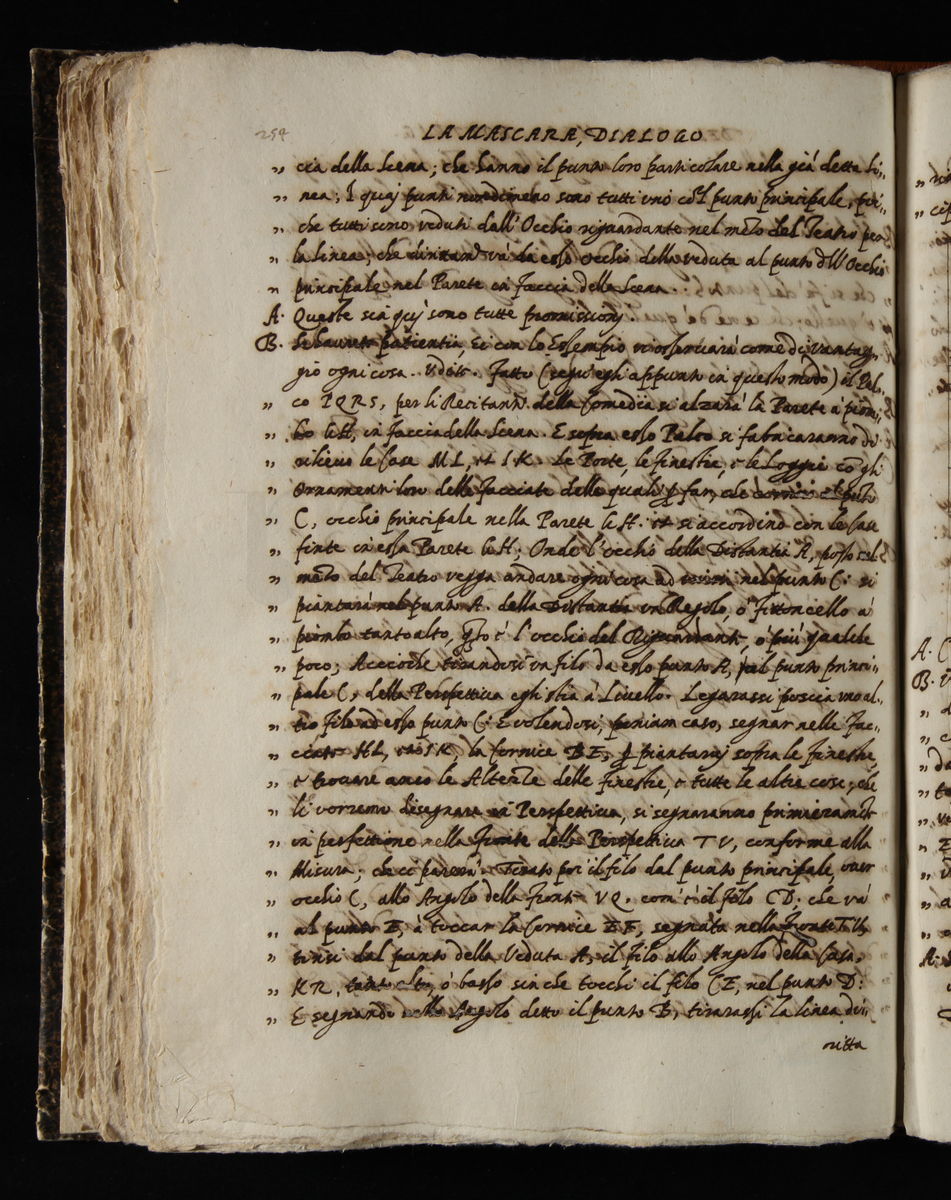 254
LA MASCARA, DIALOGO
„ cia della Scena; che hanno il punto loro particolare nella già detta Li:
„ nea; I quaj punti nondimeno sono tutti uno col punto principale, per:
„ che tutti sono veduti dall'Occhio riguardante nel mezo del Teatro per
„ la linea, che và da esso Occhio della veduta al punto dell'Occhio
„ principale nel Parete in faccia della Scena.
A. Queste sin quì sono tutte promissionj.
B. patientia, Ei con lo Essempio come di vantag:
gio ogni cosa. Udite. Fatto (segu' egli appunto in questo modo) il Pal:
„ co PQRS, per li Recitanti della Comedia si alzarà la Parete à piom:
„ bo GH, in faccia della Scena. E sopra esso Palco si fabricaranno di
„ rilievo le Case ML, et IK. Le Porte, le finestre, e le Loggie cõ gli
„ Ornamenti loro delle facciate delle quali ꝑ far, che al puto
„ C, occhio principale nella Parete GH. et si accordino con le Case
„ finte in essa Parete GH; Onde l'occhio della Distantia A, posto nel
„ mezo del Teatro vegga andare ogni cosa ad unirsi nel punto C: si
„ piantarà nel punto A. della Distantia un Regolo, ò fittoncello à
„ piombo tanto alto, q̃to è l'occhio del Riguardante, ò più qualche
„ poco; Accioche tirandosi un filo da esso punto A, al punto princi:
„ pale C, della Perspettiva egli stia à Livello. Legarassi poscia uno al:
„ tro filo ad esso punto C: E volendosi, poniam caso, segnar nelle fac:
„ ciate HL, et IK la Cornice BE, ꝑ piantarvj sopra le finestre,
„ e trovare anco le Altezze delle finestre, e tutte le altre cose, che
„ li vorremo disegnare in Perspettiva, si segnaranno primieramẽte
„ in perfettione nella fronte della Perspettiva TV, conforme alla
„ Misura, che ci parerà. Tirato poi il filo dal punto principale, over
„ occhio C, allo Angolo della fronte VQ. com'è il filo CD, che và
„ al punto E, à toccar la Cornice EF, segnata nella fronte TV,
„ tirisi dal punto della Veduta A, il filo allo Angolo della Casa,
„ KR, tanto alto, ò basso sin che tocchi il filo CE, nel punto D:
„ E segnando nello Angolo detto il punto B, tirarassi la linea di:
ritta